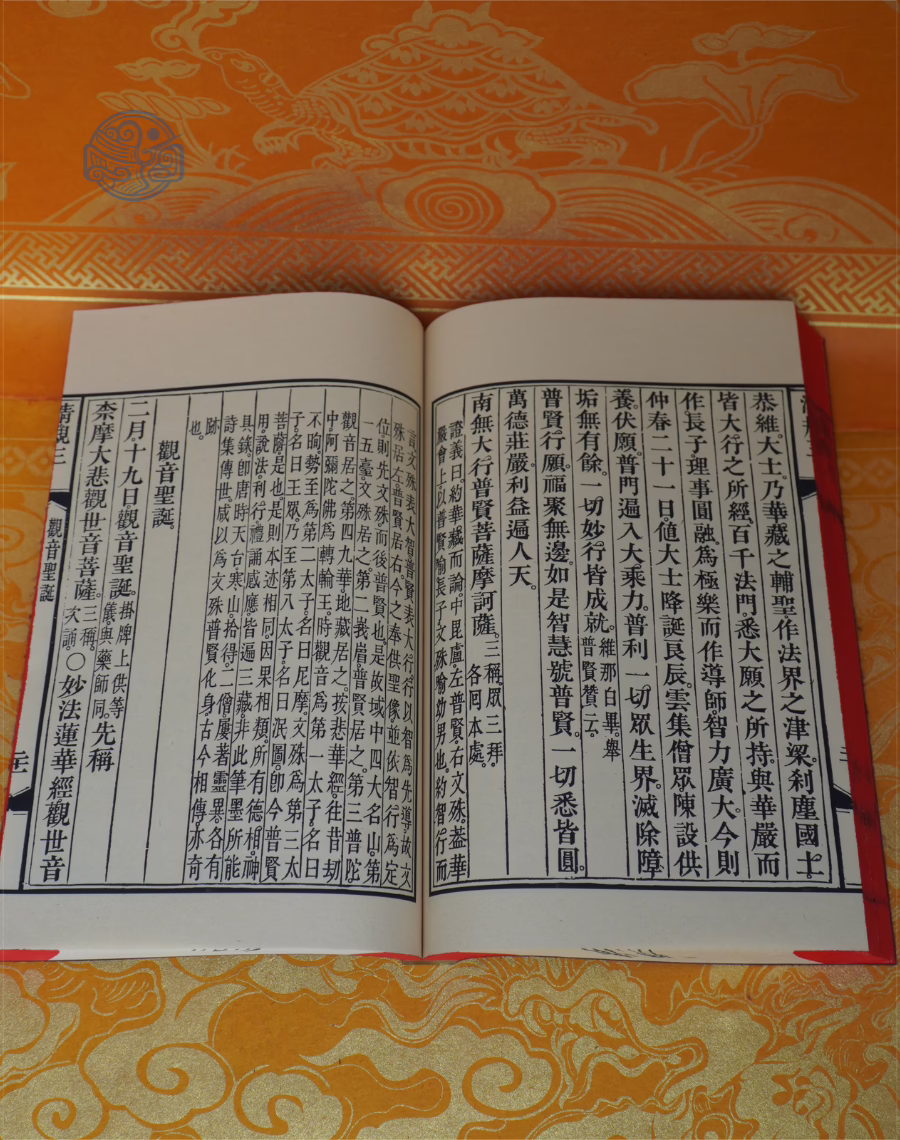 恭維。大士。乃華藏之輔聖。作法界之津梁。刹塵國土。
皆大行之所經。百千法門。悉大願之所持。與華嚴而
作長子。理事圓融。為極樂而作導師。智力廣大。今則
仲春二十一日。值大士降誕良辰。雲集僧眾。陳設供
養。伏願。普門遍入大乘力。普利一切眾生界。滅除障
垢無有餘。一切妙行皆成就。維那白畢。舉
普賢贊云。
普賢行願。福聚無邊。如是智慧號普賢。一切悉皆圓。
萬德莊嚴。利益遍人天。
南無大行普賢菩薩摩訶薩。三稱。眾三拜。
各回本處。
證義曰。約華藏而論。中毘盧。左普賢。右文殊。葢華
嚴會上。以普賢喻長子。文殊喻幼男也。約智行而
言。文殊表大智。普賢表大行。行以智為先導。故文
殊居左。普賢居右。今之奉供聖像。並依智行為定
位。則先文殊。而後普賢也。是故域中四大名山。第
一五臺。文殊居之。第二峩眉。普賢居之。第三普陀。
觀音居之。第四九華。地藏居之。按悲華經。往昔劫
中。阿彌陀佛為轉輪王。時觀音為第一太子。名曰
不眴。勢至為第二太子。名曰尼摩。文殊為第三太
子。名曰王眾。乃至第八太子。名曰泯圖。卽今普賢
菩薩是也。是則本迹相同。因果相類。所有德相。神
用。說法。利行。禮誦感應。皆遍三藏。非此筆墨所能
具錄。卽唐時天台寒山拾得。二僧屢著靈異。各有
詩集傳世。咸以為文殊普賢化身。古今相傳亦奇
跡也。
觀音聖誕。
二月。十九日。觀音聖誕。掛牌上供等
儀。與藥師同。先稱
柰摩大悲觀世音菩薩。三稱。
次誦。〇妙法蓮華經觀世音
清規三
觀音聖誕